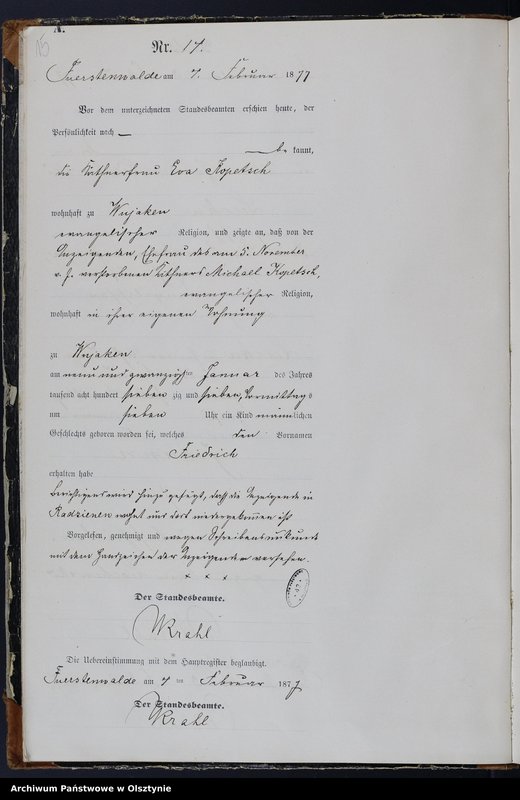 A.
Nr. 17.
Fuerstenwalde am 7. Februar 1877
Vor dem unterzeichneten Standesbeamten erschien heute, der
Persönlichkeit nach
be kannt,
die Käthnerfrau Eva Kopetsch
wohnhaft zu Wujaken
evangelischer Religion, und zeigte an, daß von der
Anzeigenden, Ehefrau des am 5. November
v. J. verstorbenen Käthners Michael Kopetsch,
evangelischer Religion,
wohnhaft in ihrer eigenen Wohnung
zu Wujaken
am neun und zwanzigsten Januar des Jahres
tausend acht hundert sieben zig und sieben, Vormittags
um sieben Uhr ein Kind männlichen
Geschlechts geboren worden sei, welches den Vornamen
Friedrich
erhalten habe
Berichtigend wird hinzu gefügt, daß die Anzeigende in
Radzienen wohnt und dort niedergekommen ist
Vorgelesen, genehmigt und wegen Schreibensunkunde
mit dem Handzeichen der Anzeigenden versehen.
x x x
Der Standesbeamte.
Krahl
Die Uebereinstimmung mit dem Hauptregister beglaubigt.
Fuerstenwalde am 7 ten Februar 1877
Der Standesbeamte.
Krahl
Archiwum Państwowe w Olsztynie